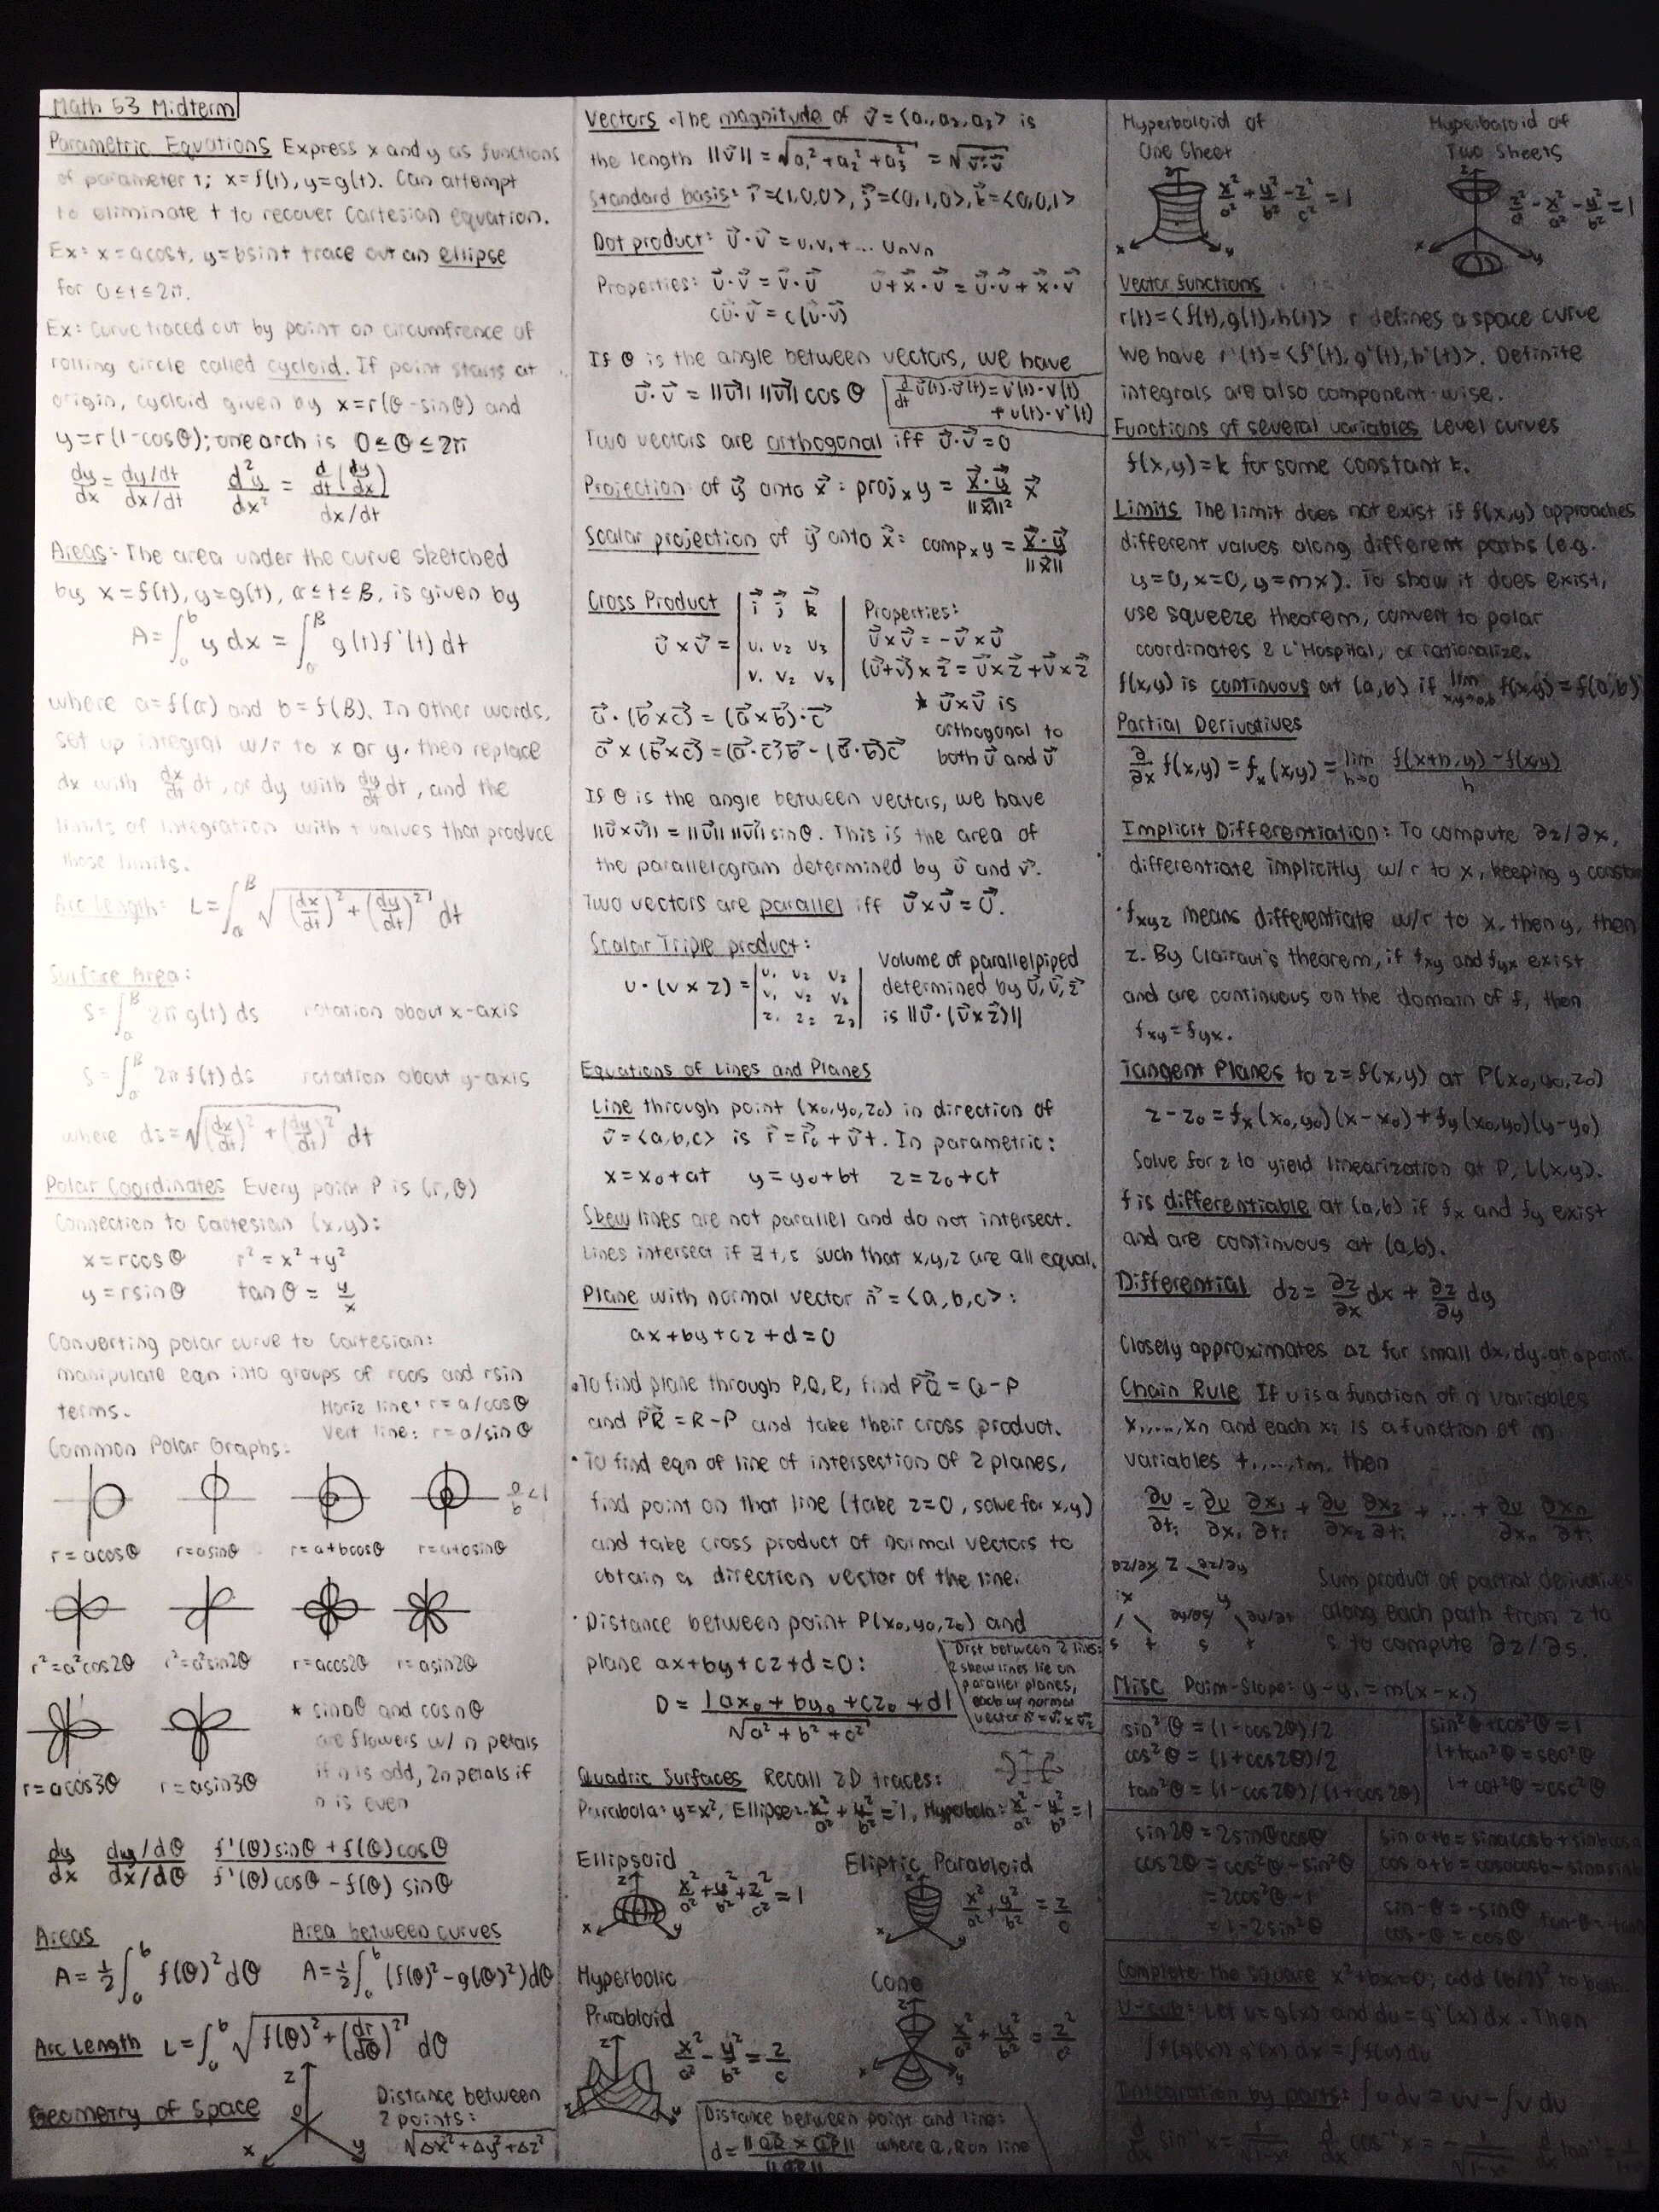 Math 53 Midterm
Parametric Equations Express x and y as functions
of parameter t; x=f(t), y=g(t). Can attempt
to eliminate t to recover Cartesian equation.
Ex: x=acost, y=bsint trace out an ellipse
for 0≤t≤2π.
Ex: Curve traced out by point on circumfrence of
rolling circle called cycloid. If point starts at
origin, cycloid given by x=r(θ-sinθ) and
y=r(1-cosθ); one arch is 0≤θ≤2π
dy/dx = (dy/dt)/(dx/dt) d²y/dx² = (d/dt(dy/dx))/(dx/dt)
Areas: The area under the curve sketched
by x=f(t), y=g(t), α≤t≤β, is given by
A=∫_a^b y dx = ∫_α^β g(t)f'(t)dt
where a=f(α) and b=f(β). In other words,
set up integral w/r to x or y, then replace
dx with dx/dt dt, or dy with dy/dt dt, and the
limits of integration with t values that produce
those limits.
Arc Length: L=∫_α^β √((dx/dt)²+(dy/dt)²) dt
Surface Area:
S=∫_α^β 2π g(t) ds rotation about x-axis
S=∫_α^β 2π f(t) ds rotation about y-axis
where ds=√((dx/dt)²+(dy/dt)²) dt
Polar Coordinates Every point P is (r,θ)
Connection to Cartesian (x,y):
x=rcosθ r²=x²+y²
y=rsinθ tanθ = y/x
Converting polar curve to Cartesian:
manipulate eqn into groups of rcos and rsin
terms.
Horiz line: r=a/cosθ
Vert line: r=a/sinθ
Common Polar Graphs:
a/b<1
r=acosθ r=asinθ r=a+bcosθ r=a+bsinθ
r²=a²cos2θ r²=a²sin2θ r=acos2θ r=asin2θ
* sinnθ and cosnθ
are flowers w/ n petals
if n is odd, 2n petals if
n is even
r=acos3θ r=asin3θ
dy/dx (dy/dθ)/(dx/dθ) (f'(θ)sinθ+f(θ)cosθ)/(f'(θ)cosθ-f(θ)sinθ)
Areas Area between curves
A=½∫_a^b f(θ)²dθ A=½∫_a^b (f(θ)²-g(θ)²)dθ
Arc Length L=∫_a^b √(f(θ)²+(dr/dθ)²) dθ
Geometry of Space
z
0
x y
Distance between
2 points:
√(Δx²+Δy²+Δz²)
Vectors •The magnitude of v⃗=<a₁,a₂,a₃> is
the length ||v⃗||=√(a₁²+a₂²+a₃²)=√(v⃗·v⃗)
Standard basis: i⃗=<1,0,0>, j⃗=<0,1,0>, k⃗=<0,0,1>
Dot product: u⃗·v⃗=u₁v₁+... uₙvₙ
Properties: u⃗·v⃗=v⃗·u⃗ u⃗+x⃗·v⃗=u⃗·v⃗+x⃗·v⃗
cu⃗·v⃗=c(u⃗·v⃗)
If θ is the angle between vectors, we have
u⃗·v⃗=||u⃗|| ||v⃗||cosθ
d/dt u⃗(t)·v⃗(t)=u'(t)·v(t)
+u(t)·v'(t)
Two vectors are orthogonal iff u⃗·v⃗=0
Projection of y⃗ onto x⃗: proj_x y = (x⃗·y⃗)/||x⃗||² x⃗
Scalar projection of y⃗ onto x⃗: comp_x y = (x⃗·y⃗)/||x⃗||
Cross Product
u⃗×v⃗= | i⃗ j⃗ k⃗ |
| u₁ u₂ u₃ |
| v₁ v₂ v₃ |
Properties:
u⃗×v⃗=-v⃗×u⃗
(u⃗+v⃗)×z⃗=u⃗×z⃗+v⃗×z⃗
* u⃗×v⃗ is
orthogonal to
both u⃗ and v⃗
a⃗·(b⃗×c⃗)=(a⃗×b⃗)·c⃗
a⃗×(b⃗×c⃗)=(a⃗·c⃗)b⃗-(a⃗·b⃗)c⃗
If θ is the angle between vectors, we have
||u⃗×v⃗||=||u⃗|| ||v⃗||sinθ. This is the area of
the parallelogram determined by u⃗ and v⃗.
Two vectors are parallel iff u⃗×v⃗=0⃗.
Scalar Triple product:
u·(v×z)= | u₁ u₂ u₃ |
| v₁ v₂ v₃ |
| z₁ z₂ z₃ |
Volume of parallelpiped
determined by u⃗,v⃗,z⃗
is ||u⃗·(v⃗×z⃗)||
Equations of Lines and Planes
Line through point (x₀,y₀,z₀) in direction of
v⃗=<a,b,c> is r⃗=r⃗₀+v⃗t. In parametric:
x=x₀+at y=y₀+bt z=z₀+ct
Skew lines are not parallel and do not intersect.
Lines intersect if ∃ t,s such that x,y,z are all equal.
Plane with normal vector n⃗=<a,b,c>:
ax+by+cz+d=0
•To find plane through P,Q,R, find PQ=Q-P
and PR=R-P and take their cross product.
•To find eqn of line of intersection of 2 planes,
find point on that line (take z=0, solve for x,y)
and take cross product of normal vectors to
obtain a direction vector of the line.
•Distance between point P(x₀,y₀,z₀) and
plane ax+by+cz+d=0:
D=|ax₀+by₀+cz₀+d|/√(a²+b²+c²)
Dist between 2 lines:
2 skew lines lie on
parallel planes,
each w/ normal
vector n⃗=v⃗₁×v⃗₂
Quadric Surfaces Recall 2D traces:
Parabola: y=x², Ellipse: x²/a²+y²/b²=1, Hyperbola: x²/a²-y²/b²=1
Ellipsoid Eliptic Parabloid
z x y x²/a²+y²/b²+z²/c²=1 z x y x²/a²+y²/b²=z/c
Hyperbolic Cone
Parabloid
z x y x²/a²-y²/b²=z/c z x y x²/a²+y²/b²=z²/c²
Distance between point and line:
d=||QR×QP||/||QR|| where Q,R on line
Hyperboloid of Hyperboloid of
One Sheet Two Sheets
z x y x²/a²+y²/b²-z²/c²=1 z x y z²/a²-x²/a²-y²/b²=1
Vector functions
r(t)=<f(t),g(t),h(t)> r defines a space curve
We have r'(t)=<f'(t),g'(t),h'(t)>. Definite
integrals are also component-wise.
Functions of several variables Level curves
f(x,y)=k for some constant k.
Limits The limit does not exist if f(x,y) approaches
different values along different paths (e.g.
y=0, x=0, y=mx). To show it does exist,
use squeeze theorem, convert to polar
coordinates & L'Hospital, or rationalize.
f(x,y) is continuous at (a,b) if lim_{x,y→a,b} f(x,y)=f(a,b)
Partial Derivatives
∂/∂x f(x,y)=fₓ(x,y)=lim_{h→0} (f(x+h,y)-f(x,y))/h
Implicit Differentiation: To compute ∂z/∂x,
differentiate implicitly w/r to x, keeping y constant
•f_xyz means differentiate w/r to x, then y, then
z. By Clairaut's theorem, if f_xy and f_yx exist
and are continuous on the domain of f, then
f_xy=f_yx.
Tangent Planes to z=f(x,y) at P(x₀,y₀,z₀)
z-z₀=f_x(x₀,y₀)(x-x₀)+f_y(x₀,y₀)(y-y₀)
Solve for z to yield linearization at P, L(x,y).
f is differentiable at (a,b) if f_x and f_y exist
and are continuous at (a,b).
Differential dz=∂z/∂x dx+∂z/∂y dy
Closely approximates Δz for small dx,dy at a point.
Chain Rule If u is a function of n variables
x₁,...,xₙ and each xᵢ is a function of m
variables t₁,...,tₘ, then
∂u/∂tᵢ=∂u/∂x₁ ∂x₁/∂tᵢ+∂u/∂x₂ ∂x₂/∂tᵢ+...+∂u/∂xₙ ∂xₙ/∂tᵢ
∂z/∂x z ∂z/∂y
x y
∂y/∂s ∂y/∂t
s t s t
Sum product of partial derivatives
along each path from z to
s to compute ∂z/∂s.
Misc Point-Slope: y-y₁=m(x-x₁)
sin²θ=(1-cos2θ)/2
cos²θ=(1+cos2θ)/2
tan²θ=(1-cos2θ)/(1+cos2θ)
sin²θ+cos²θ=1
1+tan²θ=sec²θ
1+cot²θ=csc²θ
sin2θ=2sinθcosθ
cos2θ=cos²θ-sin²θ
=2cos²θ-1
=1-2sin²θ
sin a+b=sinacosb+sinbcosa
cos a+b=cosacosb-sinasinb
sin-θ=-sinθ
cos-θ=cosθ
tan-θ=-tanθ
Complete the square x²+bx=0; add (b/2)² to both.
U-sub: Let u=g(x) and du=g'(x)dx. Then
∫f(g(x))g'(x)dx=∫f(u)du
Integration by parts: ∫u dv=uv-∫v du
d/dx sin⁻¹x=1/√(1-x²) d/dx cos⁻¹x=-1/√(1-x²) d/dx tan⁻¹=